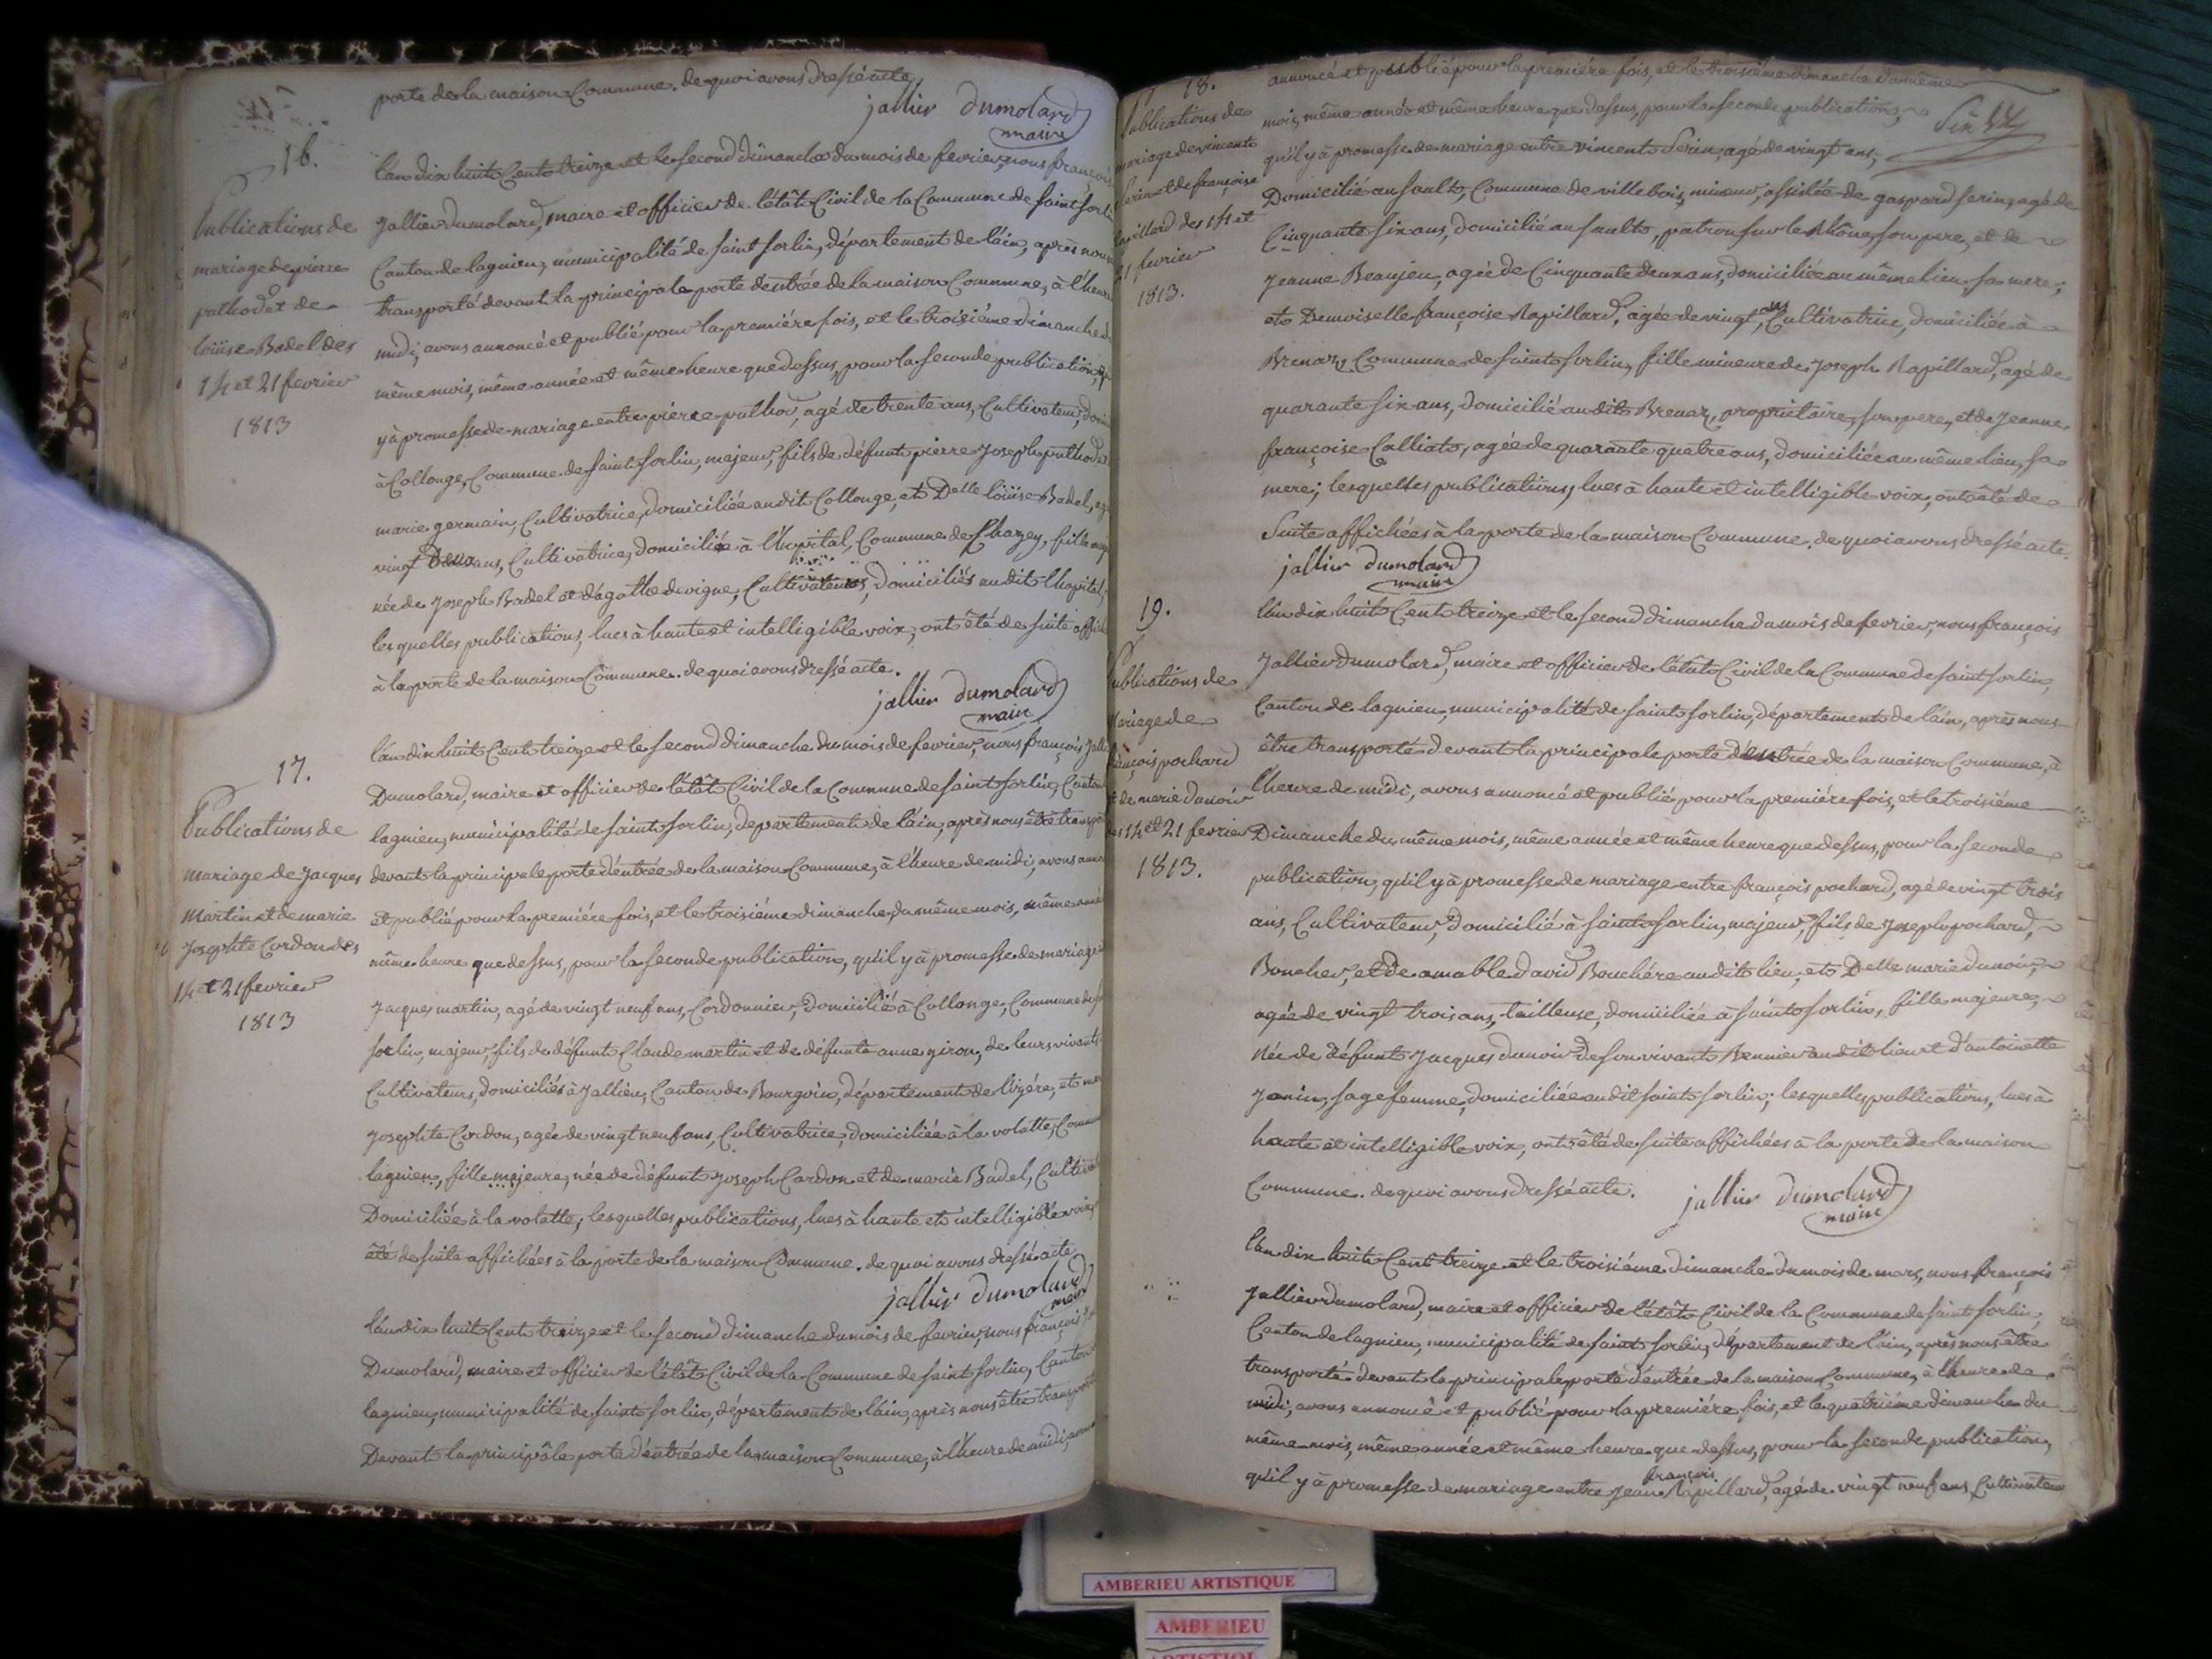 porte de la maison Commune. de quoi avons dressé acte
jallier dumolard
maire
16.
Publications de
mariage de pierre
pathod et de
loüise Badel des
14 et 21 fevrier
1813
l'an dix huit Cent treize et le second dimanche du mois de fevrier, nous françois
Jallier dumolard, maire et officier de l'état Civil de la Commune de saint sorlin
Canton de lagnieu, municipalité de saint sorlin, département de l'ain, après nous
transporté devant la principale porte d'entrée de la maison Commune, à l'heure
midi, avons annoncé et publié pour la première fois, et le troisième dimanche d
même mois, même année et même heure que dessus, pour la seconde publication, q
y à promesse de mariage entre pierre pathod, agé de trente ans, Cultivateur, domi
à Collonge, Commune de saint sorlin, majeur, fils de défunt pierre Joseph pathod
marie germain, Cultivatrice, domiciliée audit Collonge, et Delle loüise Badel, ag
vingt Deux ans, Cultivatrice, domiciliée à l'hopital, Commune de Chazey, fille maj
née de Joseph Badel et d'agathe devigne, Cultivateurs, domiciliés audit l'hopital;
lesquelles publications, lues à haute et intelligible voix, ont été de suite affich
à la porte de la maison Commune. de quoi avons dressé acte.
jallier dumolard
maire
17.
Publications de
mariage de jacques
martin et de marie
Josephte Cordon des
14 et 21 fevrier
1813
l'an dix huit Cent treize et le second dimanche du mois de fevrier, nous françois Jalli
Dumolard, maire et officier de l'état Civil de la Commune de saint sorlin, Canton
lagnieu, municipalité de saint sorlin, département de l'ain, après nous être transpo
devant la principale porte d'entrée de la maison Commune, à l'heure de midi, avons anno
et publié pour la première fois, et le troisième dimanche du même mois, même anné
même heure que dessus, pour la seconde publication, qu'il y à promesse de mariage
Jacques martin, agé de vingt neuf ans, Cordonnier, domicilié à Collonge, Commune de s
sorlin, majeur, fils de défunt Claude martin et de défunte anne giron, de leurs vivants
Cultivateurs, domiciliés à Jallieu, Canton de Bourgoin, département de l'izére, et mar
Josephte Cordon, agée de vingt neuf ans, Cultivatrice, domiciliée à la volatte, Commu
lagnieu, fille majeure, née de défunt Joseph Cordon et de marie Badel, Cultivat
Domiciliée à la volatte; lesquelles publications, lues à haute et intelligible voix,
été de suite affichées à la porte de la maison Commune. de quoi avons dressé acte
jallier dumolard
maire
l'an dix huit Cent treize et le second dimanche du mois de fevrier, nous françois Ja
Dumolard, maire et officier de l'état Civil de la Commune de saint sorlin, Canton
lagnieu, municipalité de saint sorlin, département de l'ain, après nous être transport
Devant la principale porte d'entrée de la maison Commune, à l'heure de midi, avons
18.
Publications de
mariage de vincent
Serin et de françoise
Rapillard des 14 et
21 fevrier
1813.
annoncé et publié pour la première fois, et le troisième dimanche du même
mois, même année et même heure que dessus, pour la seconde publication,
qu'il y à promesse de mariage entre vincent Serin, agé de vingt ans,
Domicilié au sault, Commune de villebois, mineur, assisté de gaspard serin, agé de
Cinquante six ans, domicilié au sault, patron sur le Rhône, son pere, et de
Jeanne Beaujeu, agée de Cinquante deux ans, domiciliée au même lieu, sa mere;
et Demoiselle françoise Rapillard, agée de vingt ans, Cultivatrice, domiciliée à
Brenaz, Commune de saint sorlin, fille mineure de Joseph Rapillard, agé de
quarante six ans, domicilié audit Brenaz, propriétaire, son pere, et de Jeanne
françoise Calliat, agée de quarante quatre ans, domiciliée au même lieu, sa
mere; lesquelles publications, lues à haute et intelligible voix, ont été de
Suite affichées à la porte de la maison Commune. de quoi avons dressé acte.
jallier dumolard
maire
19.
Publications de
Mariage de
françois pochard
et de marie dunoir
des 14 et 21 fevrier
1813.
l'an dix huit Cent treize et le second dimanche du mois de fevrier, nous françois
Jallier dumolard, maire et officier de l'état Civil de la Commune de saint sorlin,
Canton de lagnieu, municipalité de saint sorlin, département de l'ain, après nous
être transporté devant la principale porte d'entrée de la maison Commune, à
l'heure de midi, avons annoncé et publié pour la première fois, et le troisième
Dimanche du même mois, même année et même heure que dessus, pour la seconde
publication, qu'il y à promesse de mariage entre françois pochard, agé de vingt trois
ans, Cultivateur, domicilié à saint sorlin, majeur, fils de Joseph pochard,
Boucher, et de amable david Bouchére audit lieu, et Delle marie dunoir,
agée de vingt trois ans, tailleuse, domiciliée à saint sorlin, fille majeure,
née de défunt Jacques dunoir de son vivant Bennier audit lieu et d'antoinette
Janin, sagefemme, domiciliée audit saint sorlin; lesquelles publications, lues à
haute et intelligible voix, ont été de suite affichées à la porte de la maison
Commune. de quoi avons dressé acte.
jallier dumolard
maire
l'an dix huit Cent treize et le troisième dimanche du mois de mars, nous françois
Jallier dumolard, maire et officier de l'état Civil de la Commune de saint sorlin,
Canton de lagnieu, municipalité de saint sorlin, département de l'ain, après nous être
transporté devant la principale porte d'entrée de la maison Commune, à l'heure de
midi, avons annoncé et publié pour la première fois, et le quatrième dimanche du
même mois, même année et même heure que dessus, pour la seconde publication,
qu'il y à promesse de mariage entre Jean françois Rapillard, agé de vingt neuf ans, Cultivateur
AMBERIEU ARTISTIQUE
AMBERIEU
ARTISTIQUE